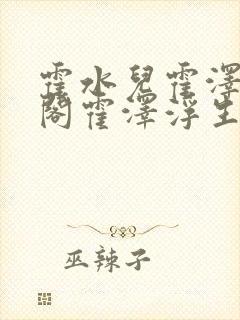 霍水兒霍澤
閣霍澤浮生
巫辣子